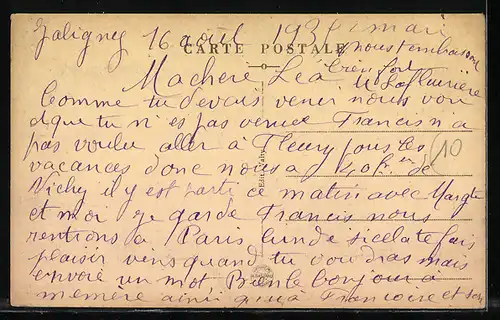 Jaligney 16 août 193 mari
CARTE POSTALE nous t'embrasons
bien fort
Machere Léa
Comme tu devais venir nous voir
et que tu n'es pas venue Francis n'a
pas voulu aller à Fleury tous les
vacances donc nous a
10
Vichy il y est parti ce matin avec Margte
et moi je garde Francis nous
rentrons à Paris lundi si cela te fais
plaisir viens quand tu voudras mais
envoie un mot Bien le bonjour à
mémère ainsi qu'à Francoise et son